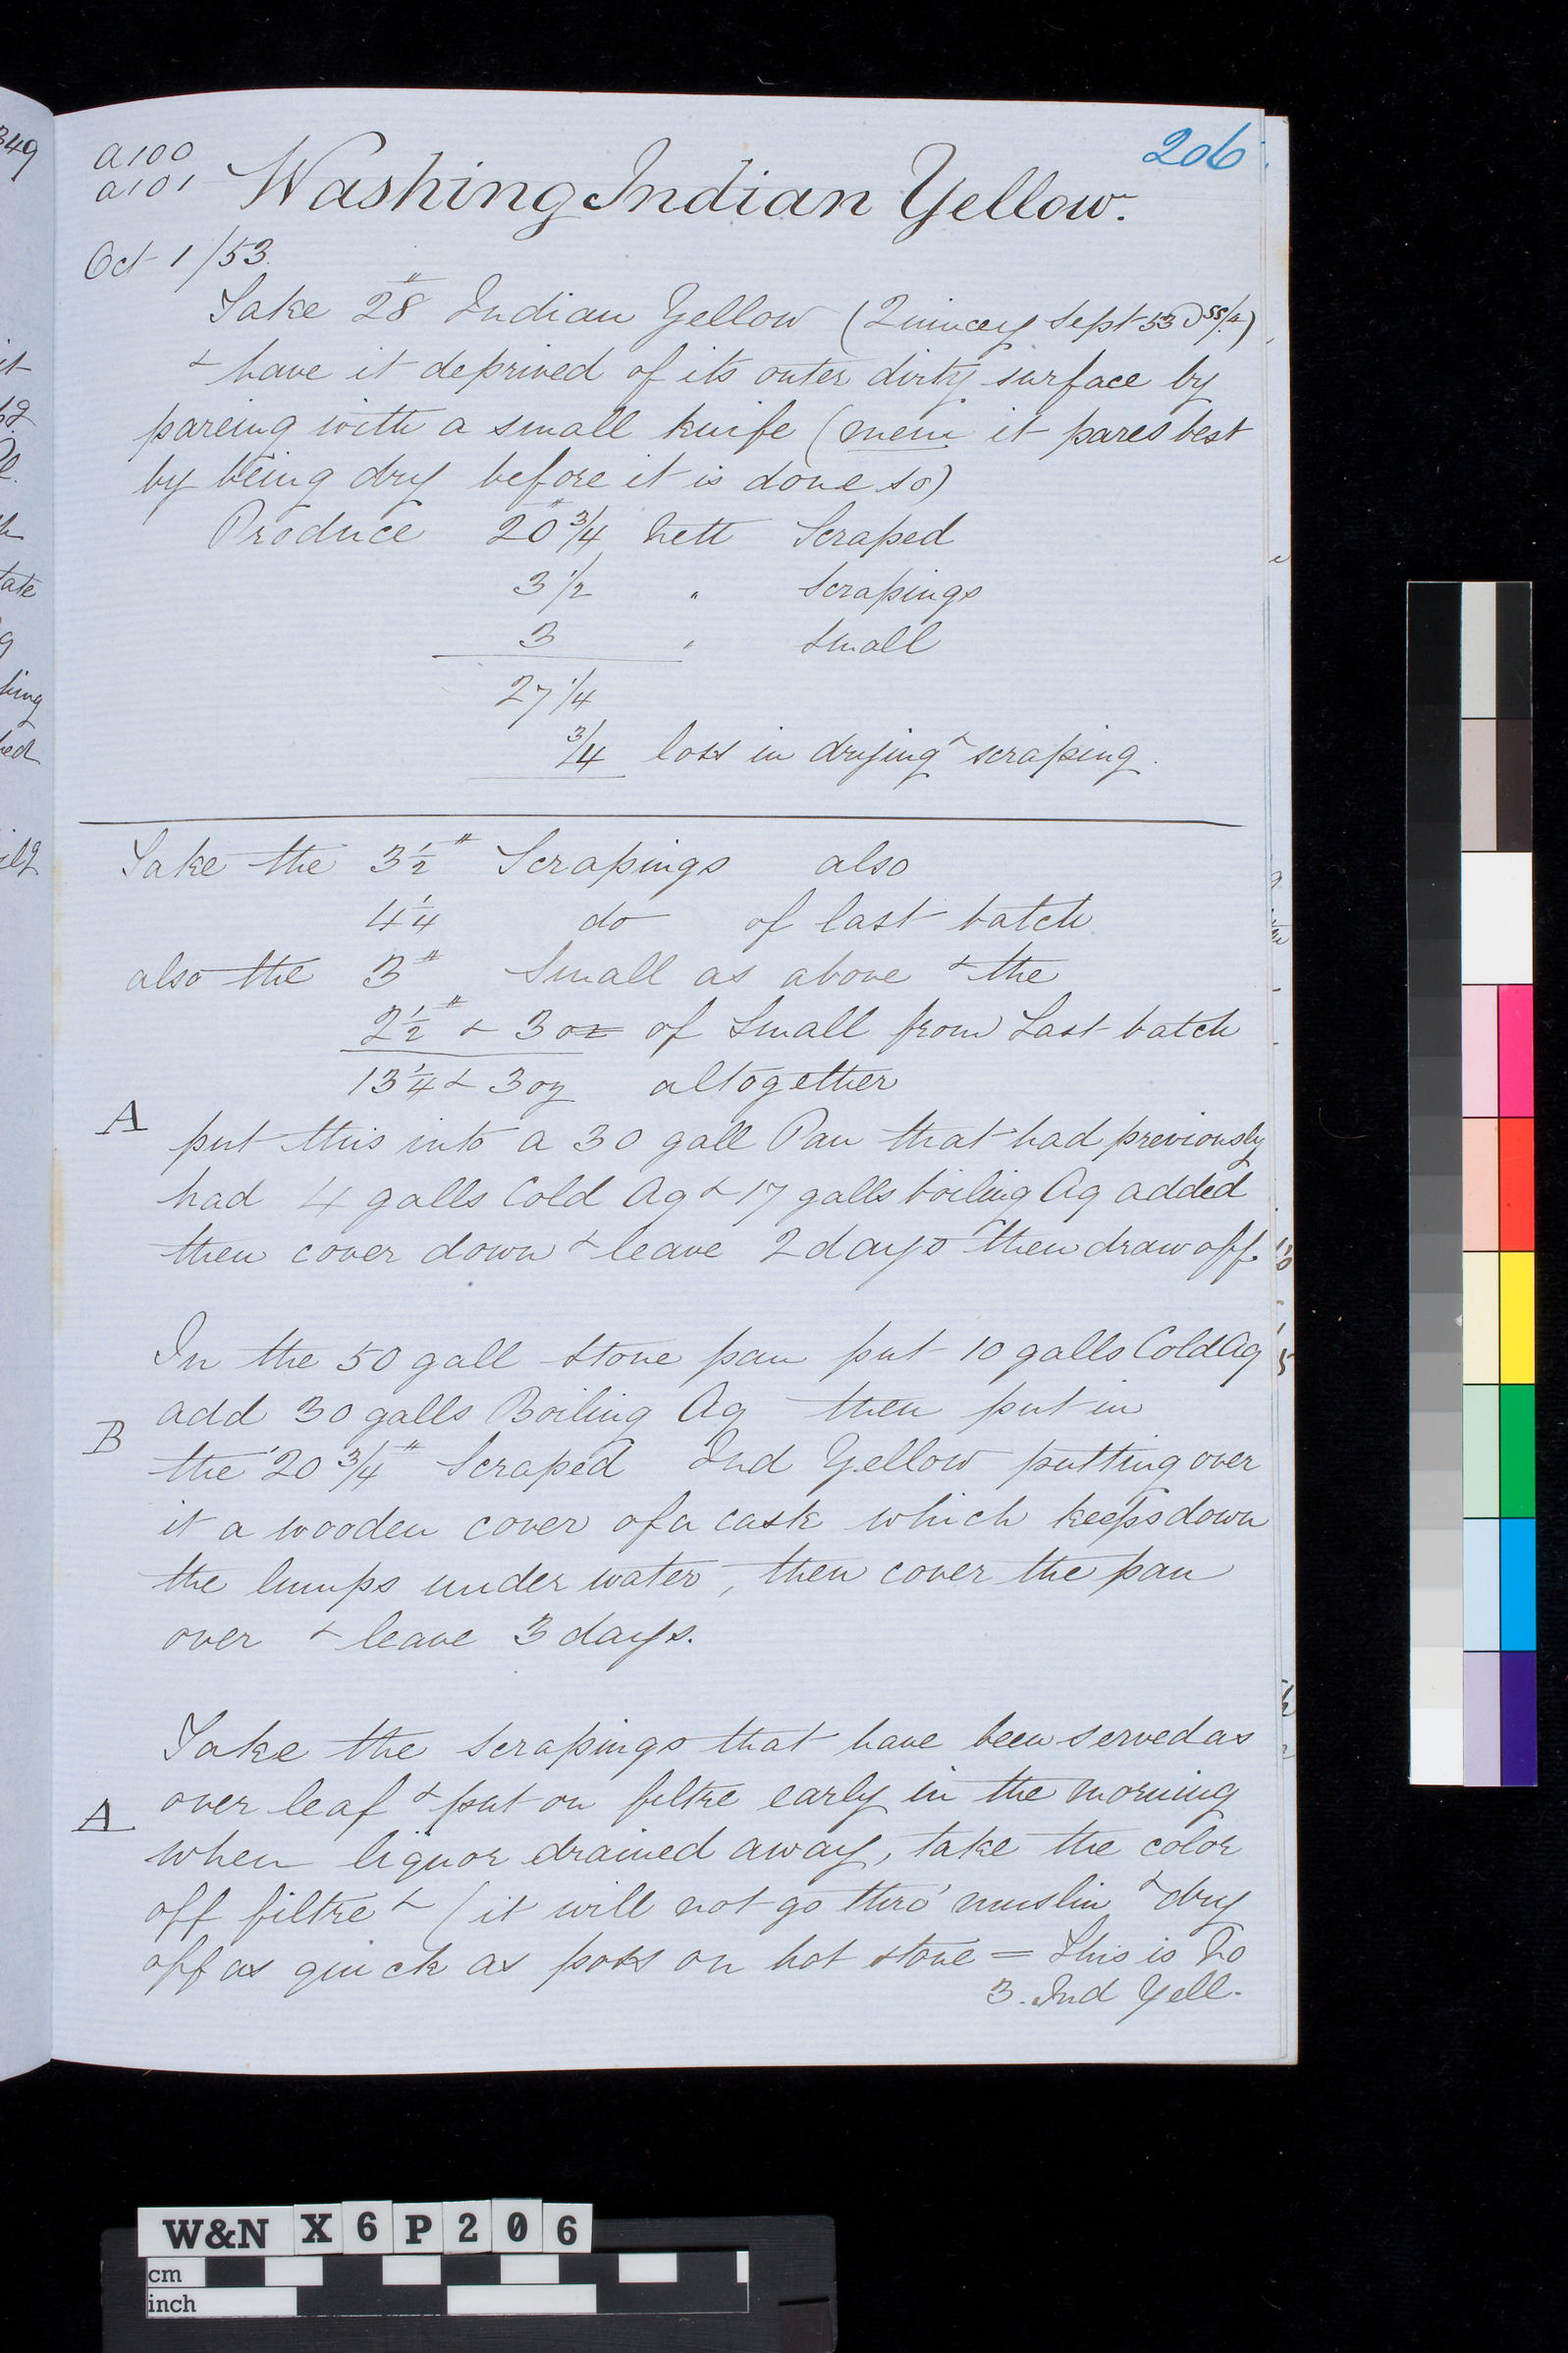 206
a100
a101 Washing Indian Yellow.
Oct 1/53.
Take 28# Indian Yellow (Quincey Sept 53
& have it deprived of its outer dirty surface by
pareing with a small knife (mem it pares best
by being dry before it is done so)
Produce 20 3/4 nett Scraped
3 1/2 " Scrapings
3 " Small
27 1/4
3/4 loss in drying & scraping.
Take the 3 1/2# Scrapings also
4 1/4 do of last batch
also the 3# Small as above & the
2 1/2# & 3 oz of Small from Last batch
13 1/4 & 3 oz altogether
A put this into a 30 gall Pan that had previously
had 4 galls Cold Aq & 17 galls boiling Aq added
then cover down & leave 2 days then draw off.
In the 50 gall stone pan put 10 galls Cold Aq
add 30 galls Boiling Aq then put in
B the 20 3/4# Scraped Ind Yellow putting over
it a wooden cover of a cask which keeps down
the lumps under water, then cover the pan
over & leave 3 days.
Take the scrapings that have been served as
A over leaf & put on filtre early in the morning
when liquor drained away, take the color
off filtre & (it will not go thro' muslin & dry
off as quick as poss on hot stone = This is No
3. Ind Yell.
W&N X6P206
cm
inch